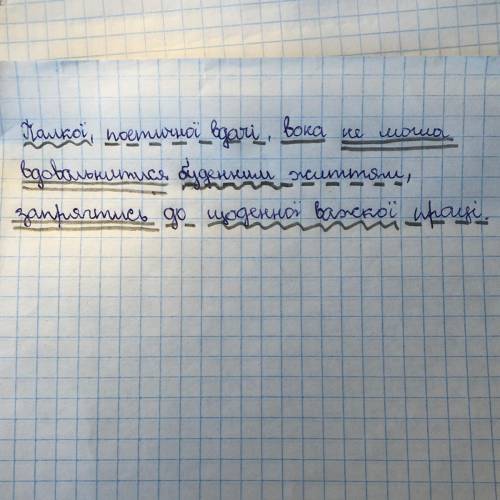 Палкої, поетичної вдачі, вона не могла
вдовольнитися буденним життям,
запрягтись до щоденної важкої праці.